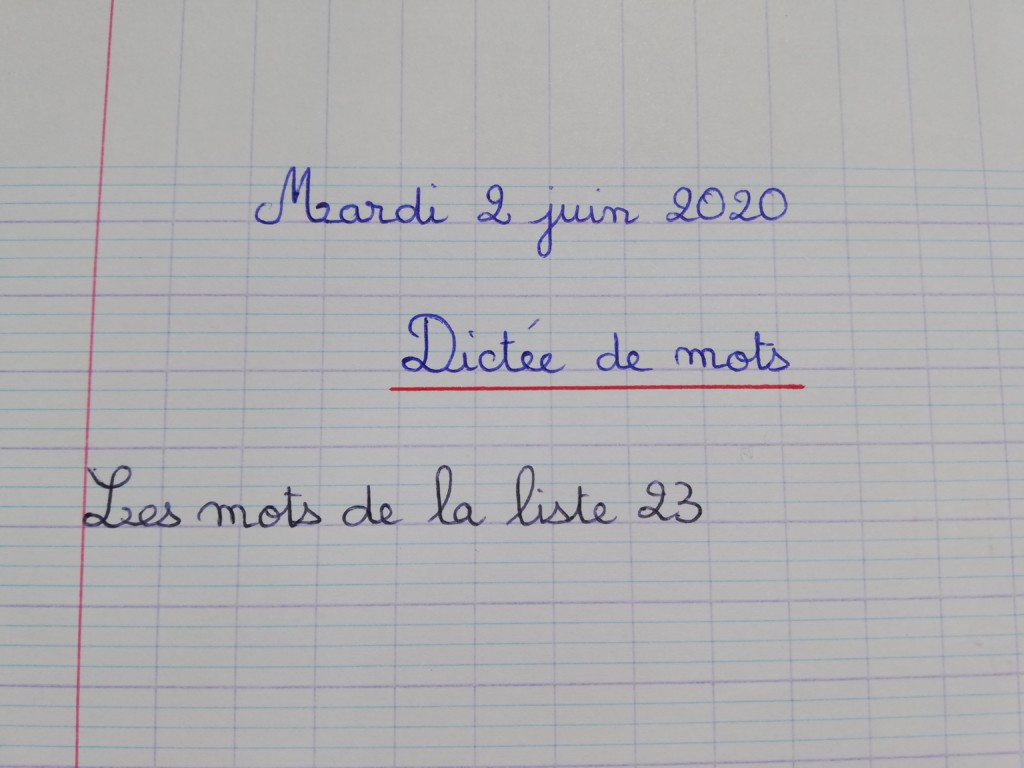 Mardi 2 juin 2020
Dictée de mots
Les mots de la liste 23